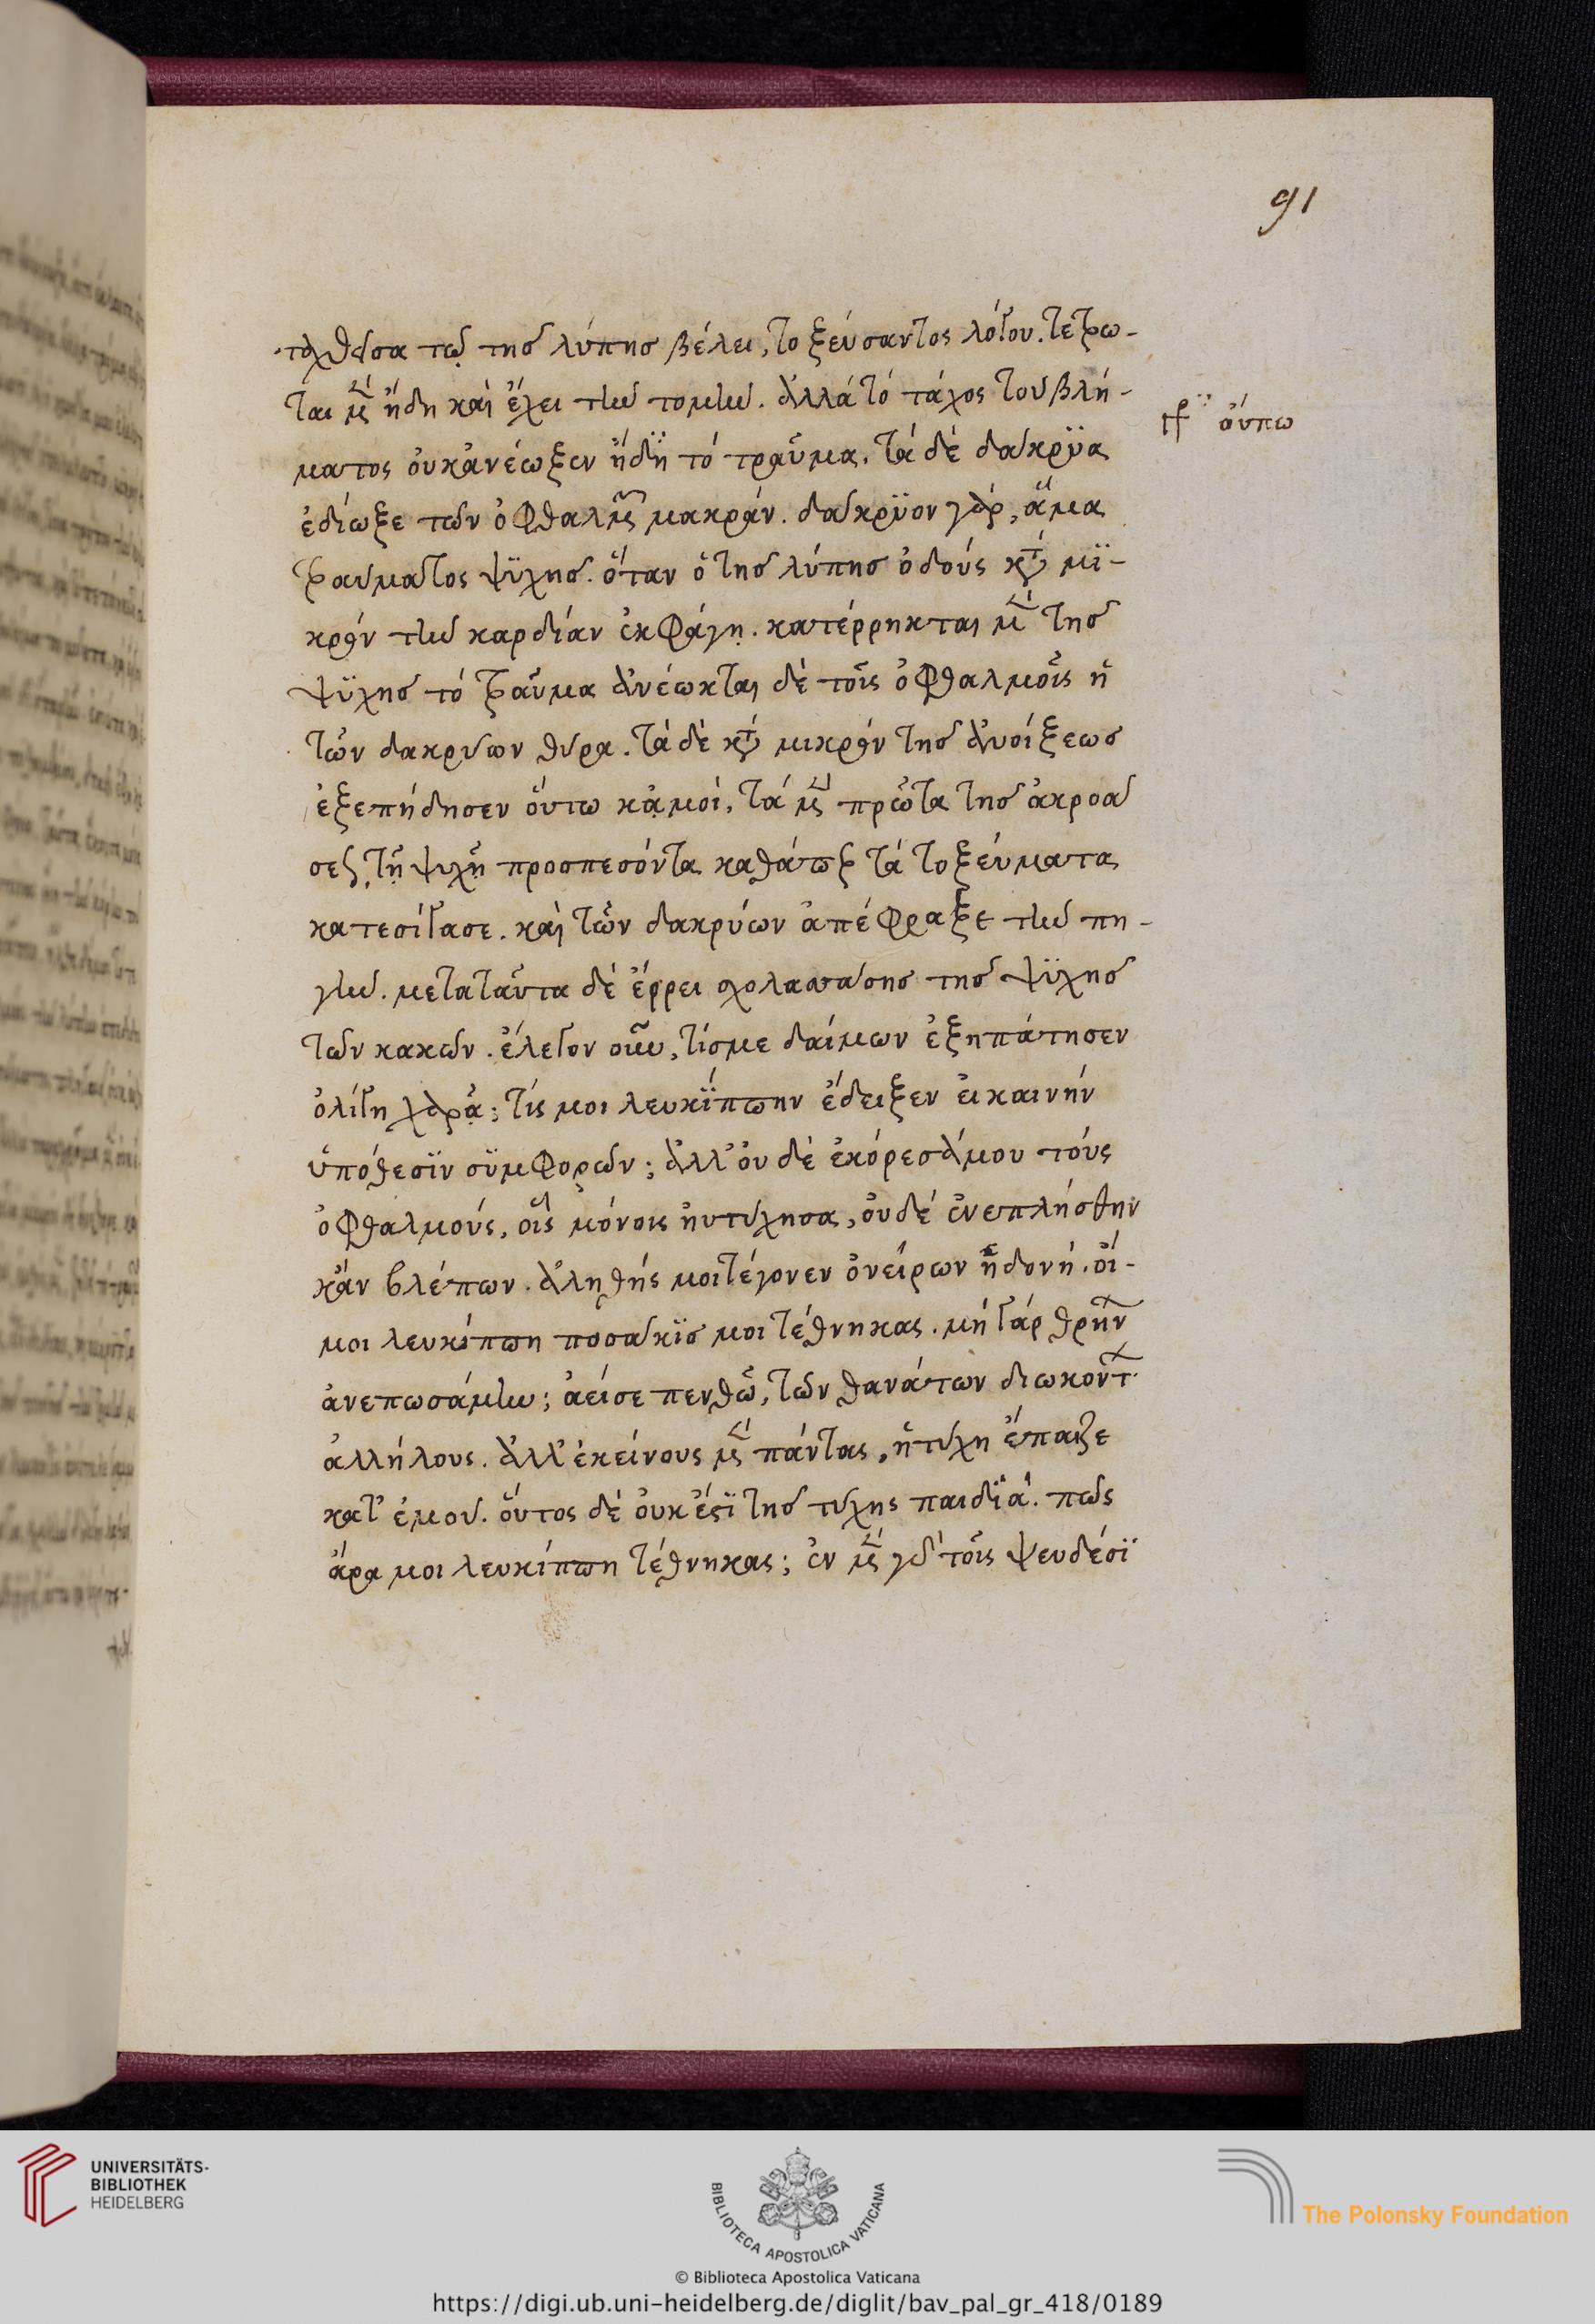 91
ταχθεῖσα τῷ τῆς λύπης βέλει, τοξεύσαντος λόγου. τέτρω-
ται μὲν ἤδη καὶ ἔχει τὴν τομὴν. ἀλλὰ τὸ τάχος τοῦ βλή-
γρ οὔπω
ματος οὐκ ἀνέωξεν ἤδη τὸ τραῦμα. τὰ δὲ δάκρϋα
ἐδίωξε τῶν ὀφθαλμῶν μακράν. δάκρϋον γὰρ, ἅμα
τραύματος ψϋχῆς. ὅταν ὁ τῆς λύπης ὀδοὺς κατὰ μϊ-
κρὸν τὴν καρδίαν ἐκφάγῃ. κατέρρηκται μὲν τῆς
ψϋχῆς τὸ τραῦμα ἀνέωκται δὲ τοῖς ὀφθαλμοῖς ἡ
τῶν δακρύων θύρα. τὰ δὲ κατὰ μικρὸν τῆς ἀνοίξεως
ἐξεπήδησεν οὕτω κἀμοὶ, τὰ μὲν πρῶτα τῆς ἀκροά
σεως, τῇ ψυχῇ προσπεσόντα καθάπερ τὰ τοξεύματα
κατεσίγασε. καὶ τῶν δακρύων ἀπέφραξε τὴν πη-
γὴν. μετὰ ταῦτα δὲ ἔρρει σχολασάσης τῆς ψϋχῆς
τῶν κακῶν. ἔλεγον οὖν, τίς με δαίμων ἐξηπάτησεν
ὀλίγῃ χαρᾷ; τίς μοι λευκΐππην ἔδειξεν εἰ καινὴν
ὑπόθεσϊν σϋμφορῶν; ἀλλ' οὐδὲ ἐκόρεσά μου τοὺς
ὀφθαλμούς, οἷς μόνοις ηὐτύχησα, οὐδὲ ἐνεπλήσθην
κἂν βλέπων. ἀληθής μοι γέγονεν ὀνείρων ἡδονή. οἴ-
μοι λευκίππη ποσάκϊς μοι τέθνηκας. μὴ γὰρ θρηνῶν
ἀνεπαυσάμην; ἀεί σε πενθῶ, τῶν θανάτων διωκόντων
ἀλλήλους. ἀλλ' ἐκείνους μὲν πάντας, ἡ τύχη ἔπαιζε
κατ' ἐμοῦ. οὗτος δὲ οὐκ ἔστϊ τῆς τύχης παιδϊά. πῶς
ἄρα μοι λευκίππη τέθνηκας; ἐν μὲν γὰρ τοῖς ψευδέσϊ
UNIVERSITÄTS-
BIBLIOTHEK
HEIDELBERG
BIBLIOTECA APOSTOLICA VATICANA
The Polonsky Foundation
© Biblioteca Apostolica Vaticana
https://digi.ub.uni-heidelberg.de/diglit/bav_pal_gr_418/0189